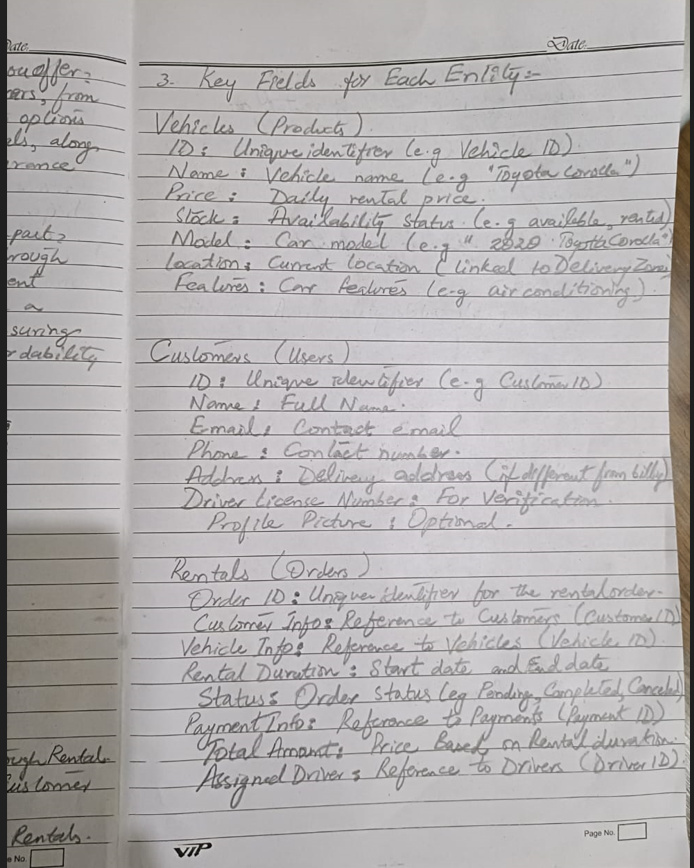 Date
Date
ou offer?
ers, from
options
els, along
erence
part?
rough
ent
a
suring
rdability
ough Rental.
Customer
Rentals.
e No.
3. Key Fields for Each Entity:-
Vehicles (Products)
ID : Unique identifier (e.g Vehicle ID)
Name : Vehicle name (e.g "Toyota Corolla")
Price : Daily rental price.
Stock : Availability status (e.g available, rented)
Model : Car model (e.g " 2020 Toyota Corolla")
Location : Current location (linked to Delivery Zone)
Features : Car features (e.g air conditioning).
Customers (Users)
ID : Unique identifier (e.g Customer ID)
Name : Full Name.
Email : Contact email
Phone : Contact number.
Address : Delivery address (if different from)
Driver License Number : For Verification.
Profile Picture : Optional.
Rentals (Orders)
Order ID : Unique identifier for the rental order.
Customer Info : Reference to Customers (Customer ID)
Vehicle Info : Reference to Vehicles (Vehicle ID).
Rental Duration : Start date and End date
Status : Order Status (eg Pending, Completed, Canceled)
Payment Info : Reference to Payments (Payment ID)
Total Amount : Price Based on Rental duration.
Assigned Driver : Reference to Drivers (Driver ID).
Page No.
VIP